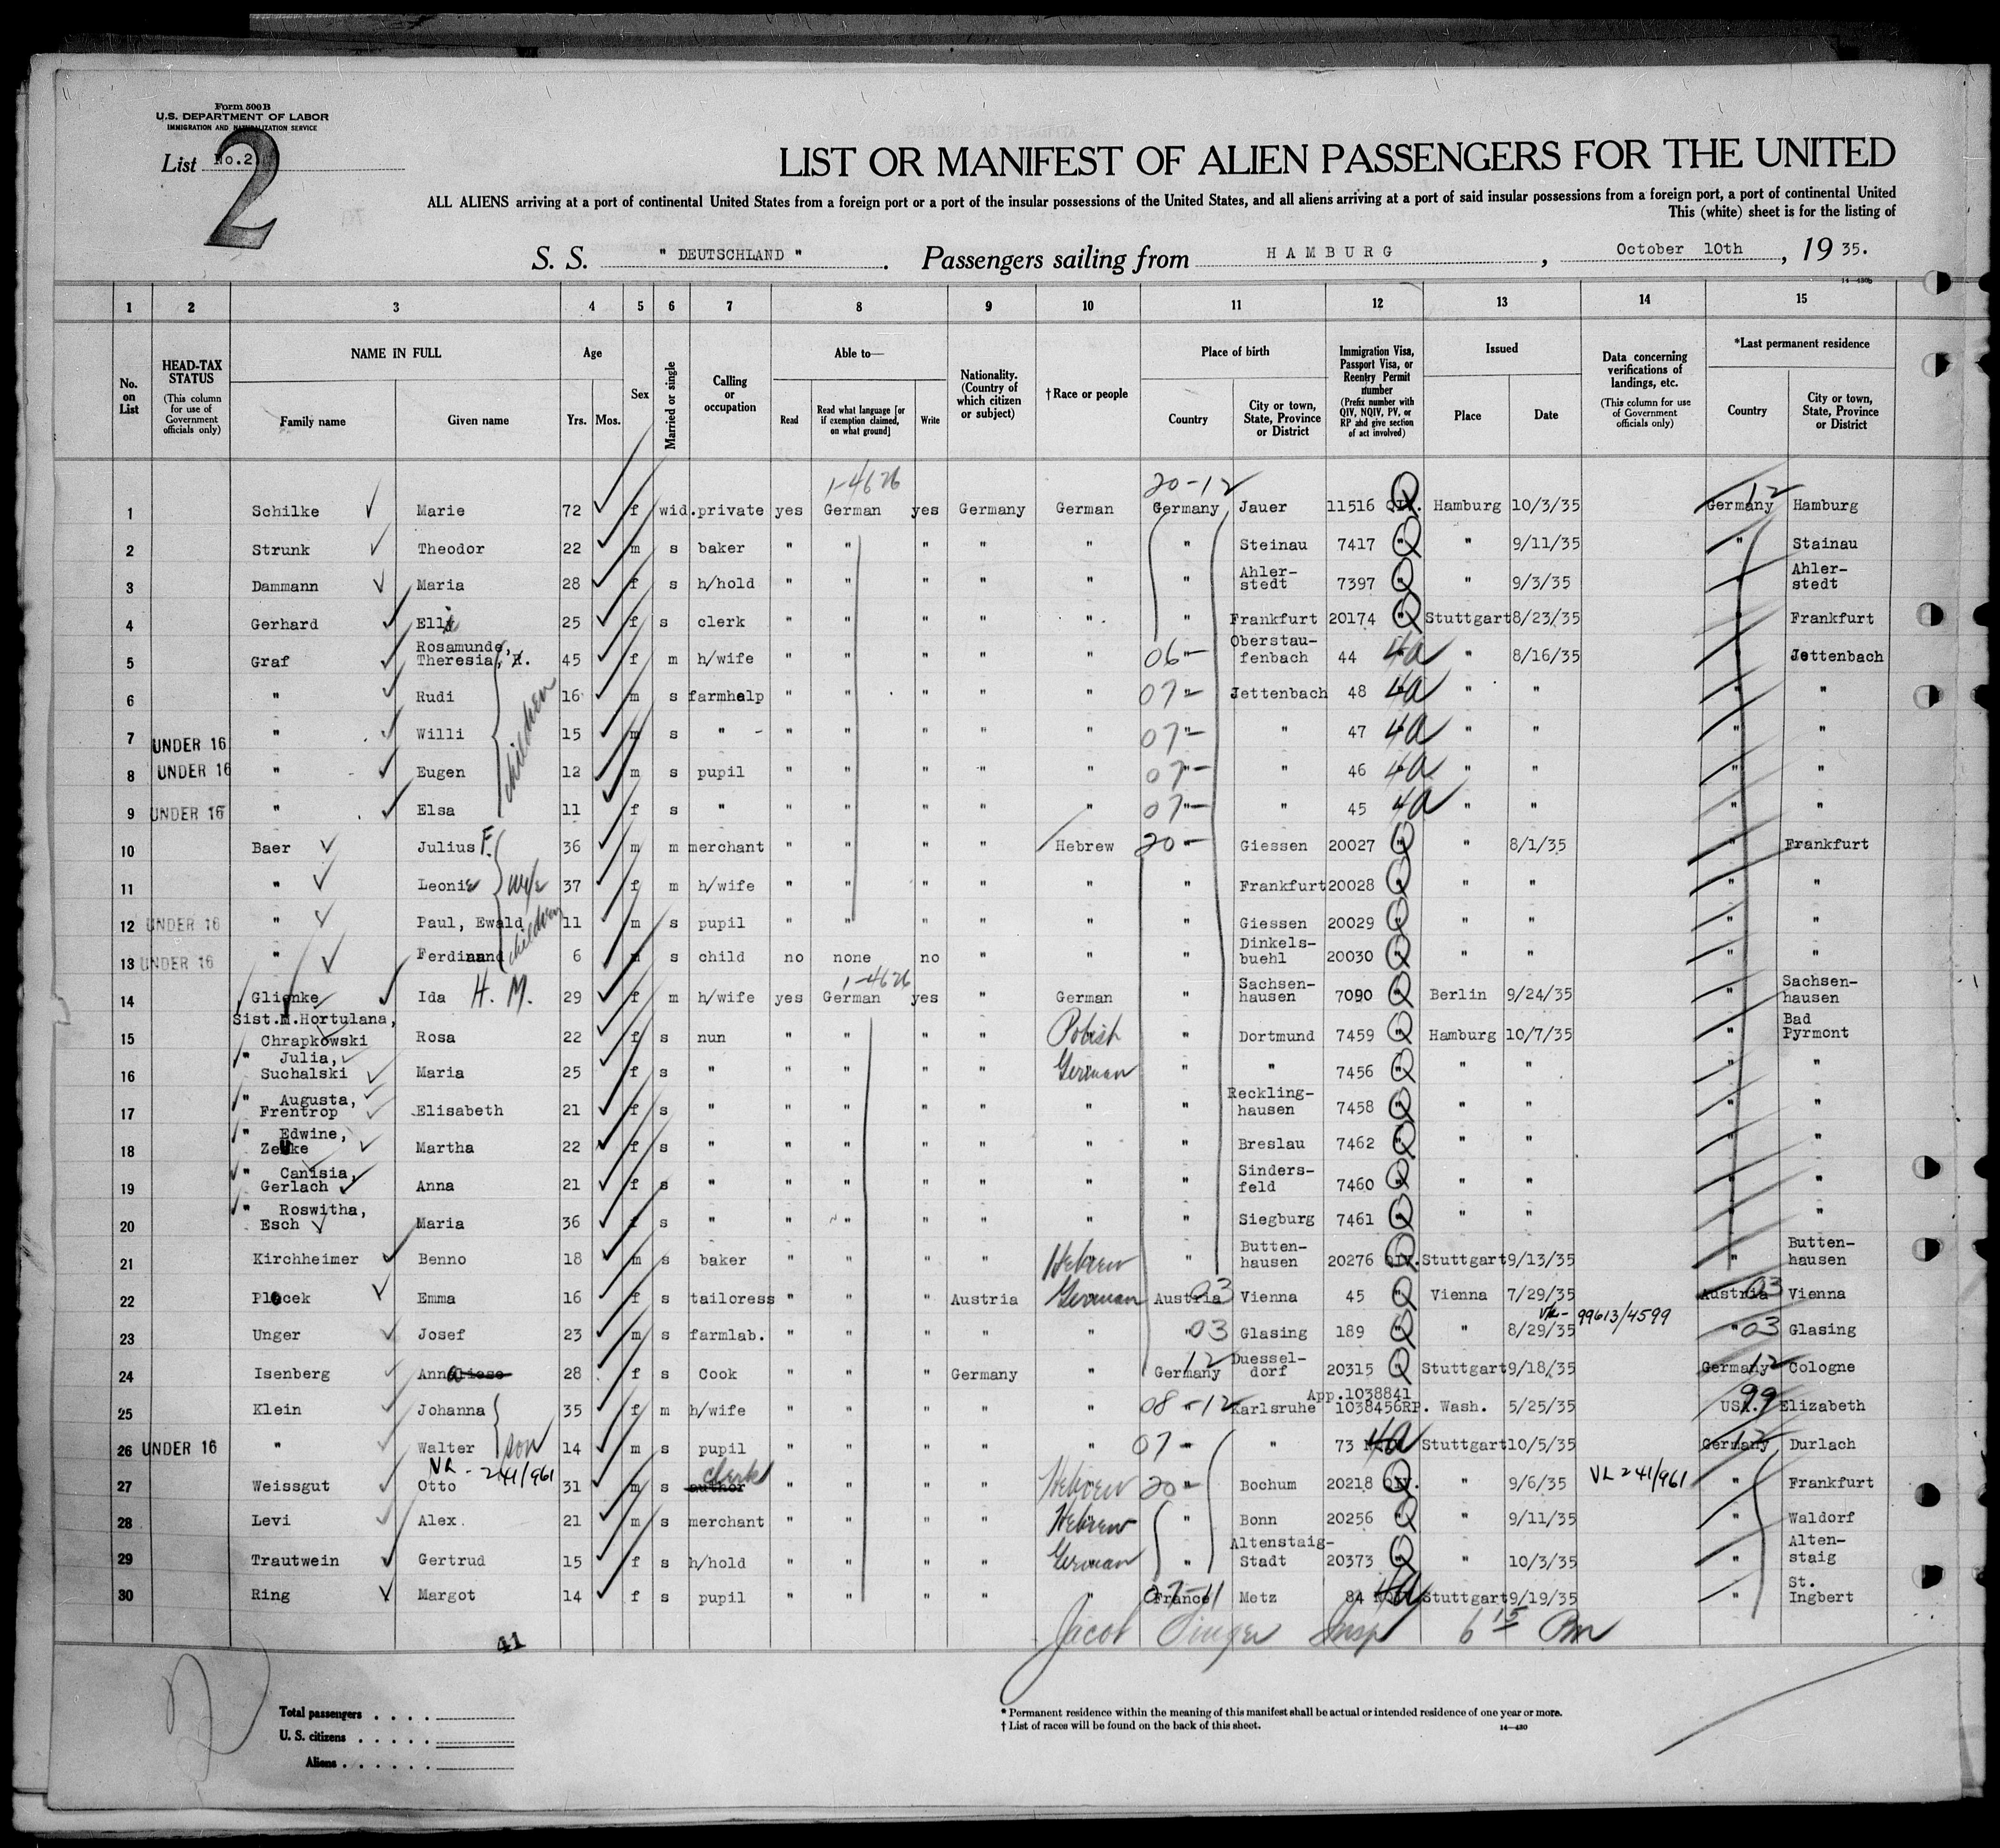 Form 500B
U.S. DEPARTMENT OF LABOR
IMMIGRATION AND NATURALIZATION SERVICE
List No.2
2
LIST OR MANIFEST OF ALIEN PASSENGERS FOR THE UNITED
ALL ALIENS arriving at a port of continental United States from a foreign port or a port of the insular possessions of the United States, and all aliens arriving at a port of said insular possessions from a foreign port, a port of continental United
This (white) sheet is for the listing of
S. S. " DEUTSCHLAND " . Passengers sailing from HAMBURG , October 10th , 19 35.
14—430b
1 2 3 4 5 6 7 8 9 10 11 12 13 14 15
No. on List
HEAD-TAX STATUS (This column for use of Government officials only)
NAME IN FULL Family name Given name
Age Yrs. Mos.
Sex
Married or single
Calling or occupation
Able to— Read Read what language [or if exemption claimed, on what ground] Write
Nationality. (Country of which citizen or subject)
† Race or people
Place of birth Country City or town, State, Province or District
Immigration Visa, Passport Visa, or Reentry Permit number (Prefix number with QIV, NQIV, PV, or RP and give section of act involved)
Issued Place Date
Data concerning verifications of landings, etc. (This column for use of Government officials only)
*Last permanent residence Country City or town, State, Province or District
1-4626 20-12
1 Schilke Marie 72 f wid. private yes German yes Germany German Germany Jauer 11516 QIV. Hamburg 10/3/35 Germany 12 Hamburg
2 Strunk Theodor 22 m s baker " " " " " " Steinau 7417 " " 9/11/35 " Stainau
3 Dammann Maria 28 f s h/hold " " " " " " Ahler-stedt 7397 " " 9/3/35 " Ahler-stedt
4 Gerhard Elli 25 f s clerk " " " " " " Frankfurt 20174 " Stuttgart 8/23/35 " Frankfurt
5 Graf Rosamunde, Theresia, R. 45 f m h/wife " " " " " 06 " Oberstau-fenbach 44 4a " 8/16/35 " Jettenbach
6 " Rudi children 16 m s farmhelp " " " " " 07 " Jettenbach 48 4a " " " "
7 UNDER 16 " Willi 15 m s " " " " " " 07 " " 47 4a " " " "
8 UNDER 16 " Eugen 12 m s pupil " " " " " 07 " " 46 4a " " " "
9 UNDER 16 " Elsa 11 f s " " " " " " 07 " " 45 4a " " " "
10 Baer Julius F. 36 m m merchant " " " " Hebrew 20 " Giessen 20027 " " 8/1/35 " Frankfurt
11 " Leonie wife 37 f m h/wife " " " " " " Frankfurt 20028 " " " " "
12 UNDER 16 " Paul, Ewald children 11 m s pupil " " " " " " Giessen 20029 " " " " "
13 UNDER 16 " Ferdinand 6 m s child no none no " " " Dinkels-buehl 20030 " " " " "
1-4626
14 Glienke Ida H. M. 29 f m h/wife yes German yes " German " Sachsen-hausen 7090 " Berlin 9/24/35 " Sachsen-hausen
15 Sist.M.Hortulana, Chrapkowski Rosa 22 f s nun " " " " Polish " Dortmund 7459 " Hamburg 10/7/35 " Bad Pyrmont
16 " Julia, Suchalski Maria 25 f s " " " " " German " " 7456 " " " " "
17 " Augusta, Frentrop Elisabeth 21 f s " " " " " " " Reckling-hausen 7458 " " " " "
18 " Edwine, Martha 22 f s " " " " " " " Breslau 7462 " " " " "
19 " Canisia, Gerlach Anna 21 f s " " " " " " " Sinders-feld 7460 " " " " "
20 " Roswitha, Esch Maria 36 f s " " " " " " " Siegburg 7461 " " " " "
21 Kirchheimer Benno 18 m s baker " " " " Hebrew " Butten-hausen 20276 QIV. Stuttgart 9/13/35 " Butten-hausen
22 Plocek Emma 16 f s tailoress " " " Austria German Austria 03 Vienna 45 " Vienna 7/29/35 Austria 03 Vienna
23 Unger Josef 23 m s farmlab. " " " " " " 03 Glasing 189 " " 8/29/35 VL- 99613/4599 " 03 Glasing
24 Isenberg Anna 28 f s Cook " " " Germany " Germany 12 Duessel-dorf 20315 " Stuttgart 9/18/35 Germany 12 Cologne
25 Klein Johanna 35 f m h/wife " " " " " 08 " -12 Karlsruhe App.1038841 1038456RP. Wash. 5/25/35 USA. 99 Elizabeth
26 UNDER 16 " Walter son 14 m s pupil " " " " " 07 " " 73 4a Stuttgart 10/5/35 Germany 12 Durlach
27 Weissgut Otto VL - 241/961 31 m s author clerk " " " " Hebrew 20 " Bochum 20218 QIV. " 9/6/35 VL 241/961 " Frankfurt
28 Levi Alex. 21 m s merchant " " " " Hebrew " Bonn 20256 " " 9/11/35 " Waldorf
29 Trautwein Gertrud 15 f s h/hold " " " " German " Altenstaig-Stadt 20373 " " 10/3/35 " Alten-staig
30 Ring Margot 14 f s pupil " " " " " France Metz 84 4a Stuttgart 9/19/35 " St. Ingbert
41
Jacob Singer Insp 6 15 Pm
Total passengers . . . .
U. S. citizens . . . . .
Aliens . . . . . .
* Permanent residence within the meaning of this manifest shall be actual or intended residence of one year or more.
† List of races will be found on the back of this sheet. 14—430